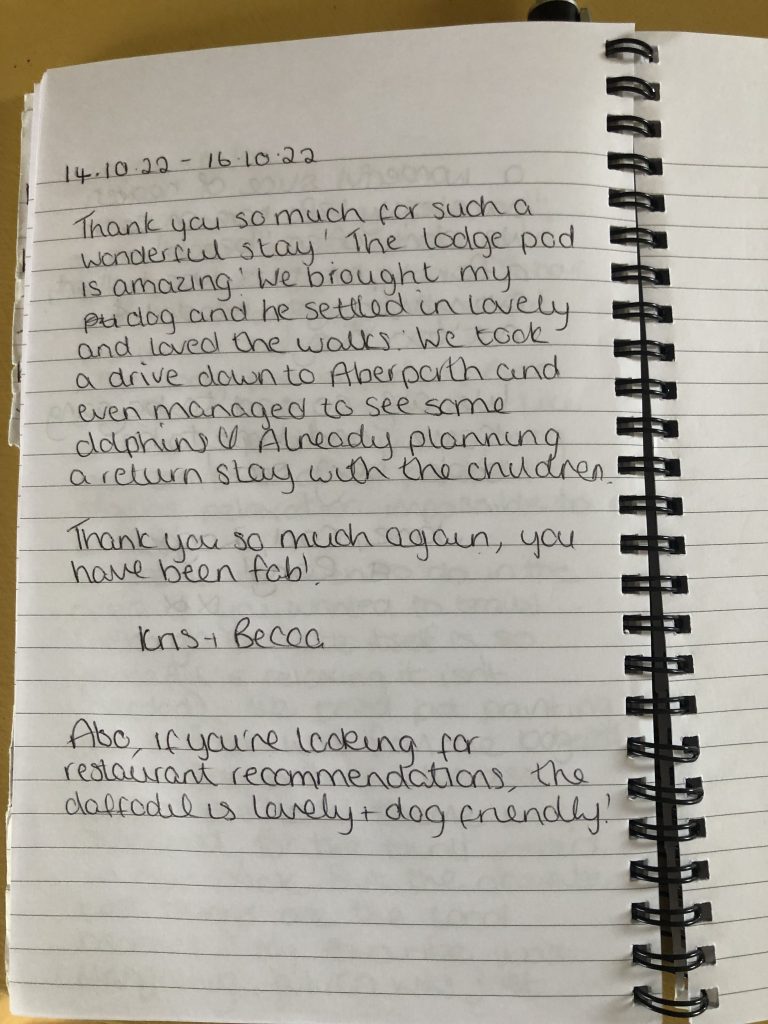 14.10.22 - 16.10.22
Thank you so much for such a
wonderful stay! The lodge pod
is amazing! We brought my
dog and he settled in lovely
and loved the walks. We took
a drive down to Aberporth and
even managed to see some
dolphins ♡ Already planning
a return stay with the children.
Thank you so much again, you
have been fab!
Kris + Becca
Also, if you're looking for
restaurant recommendations, the
daffodil is lovely + dog friendly!